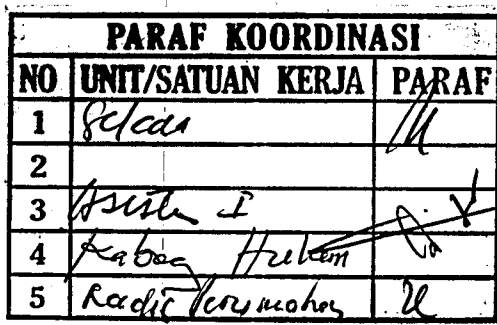 PARAF KOORDINASI
NO UNIT/SATUAN KERJA PARAF
1 Sekda
2
3 Asisten I
4 Kabag Hukum
5